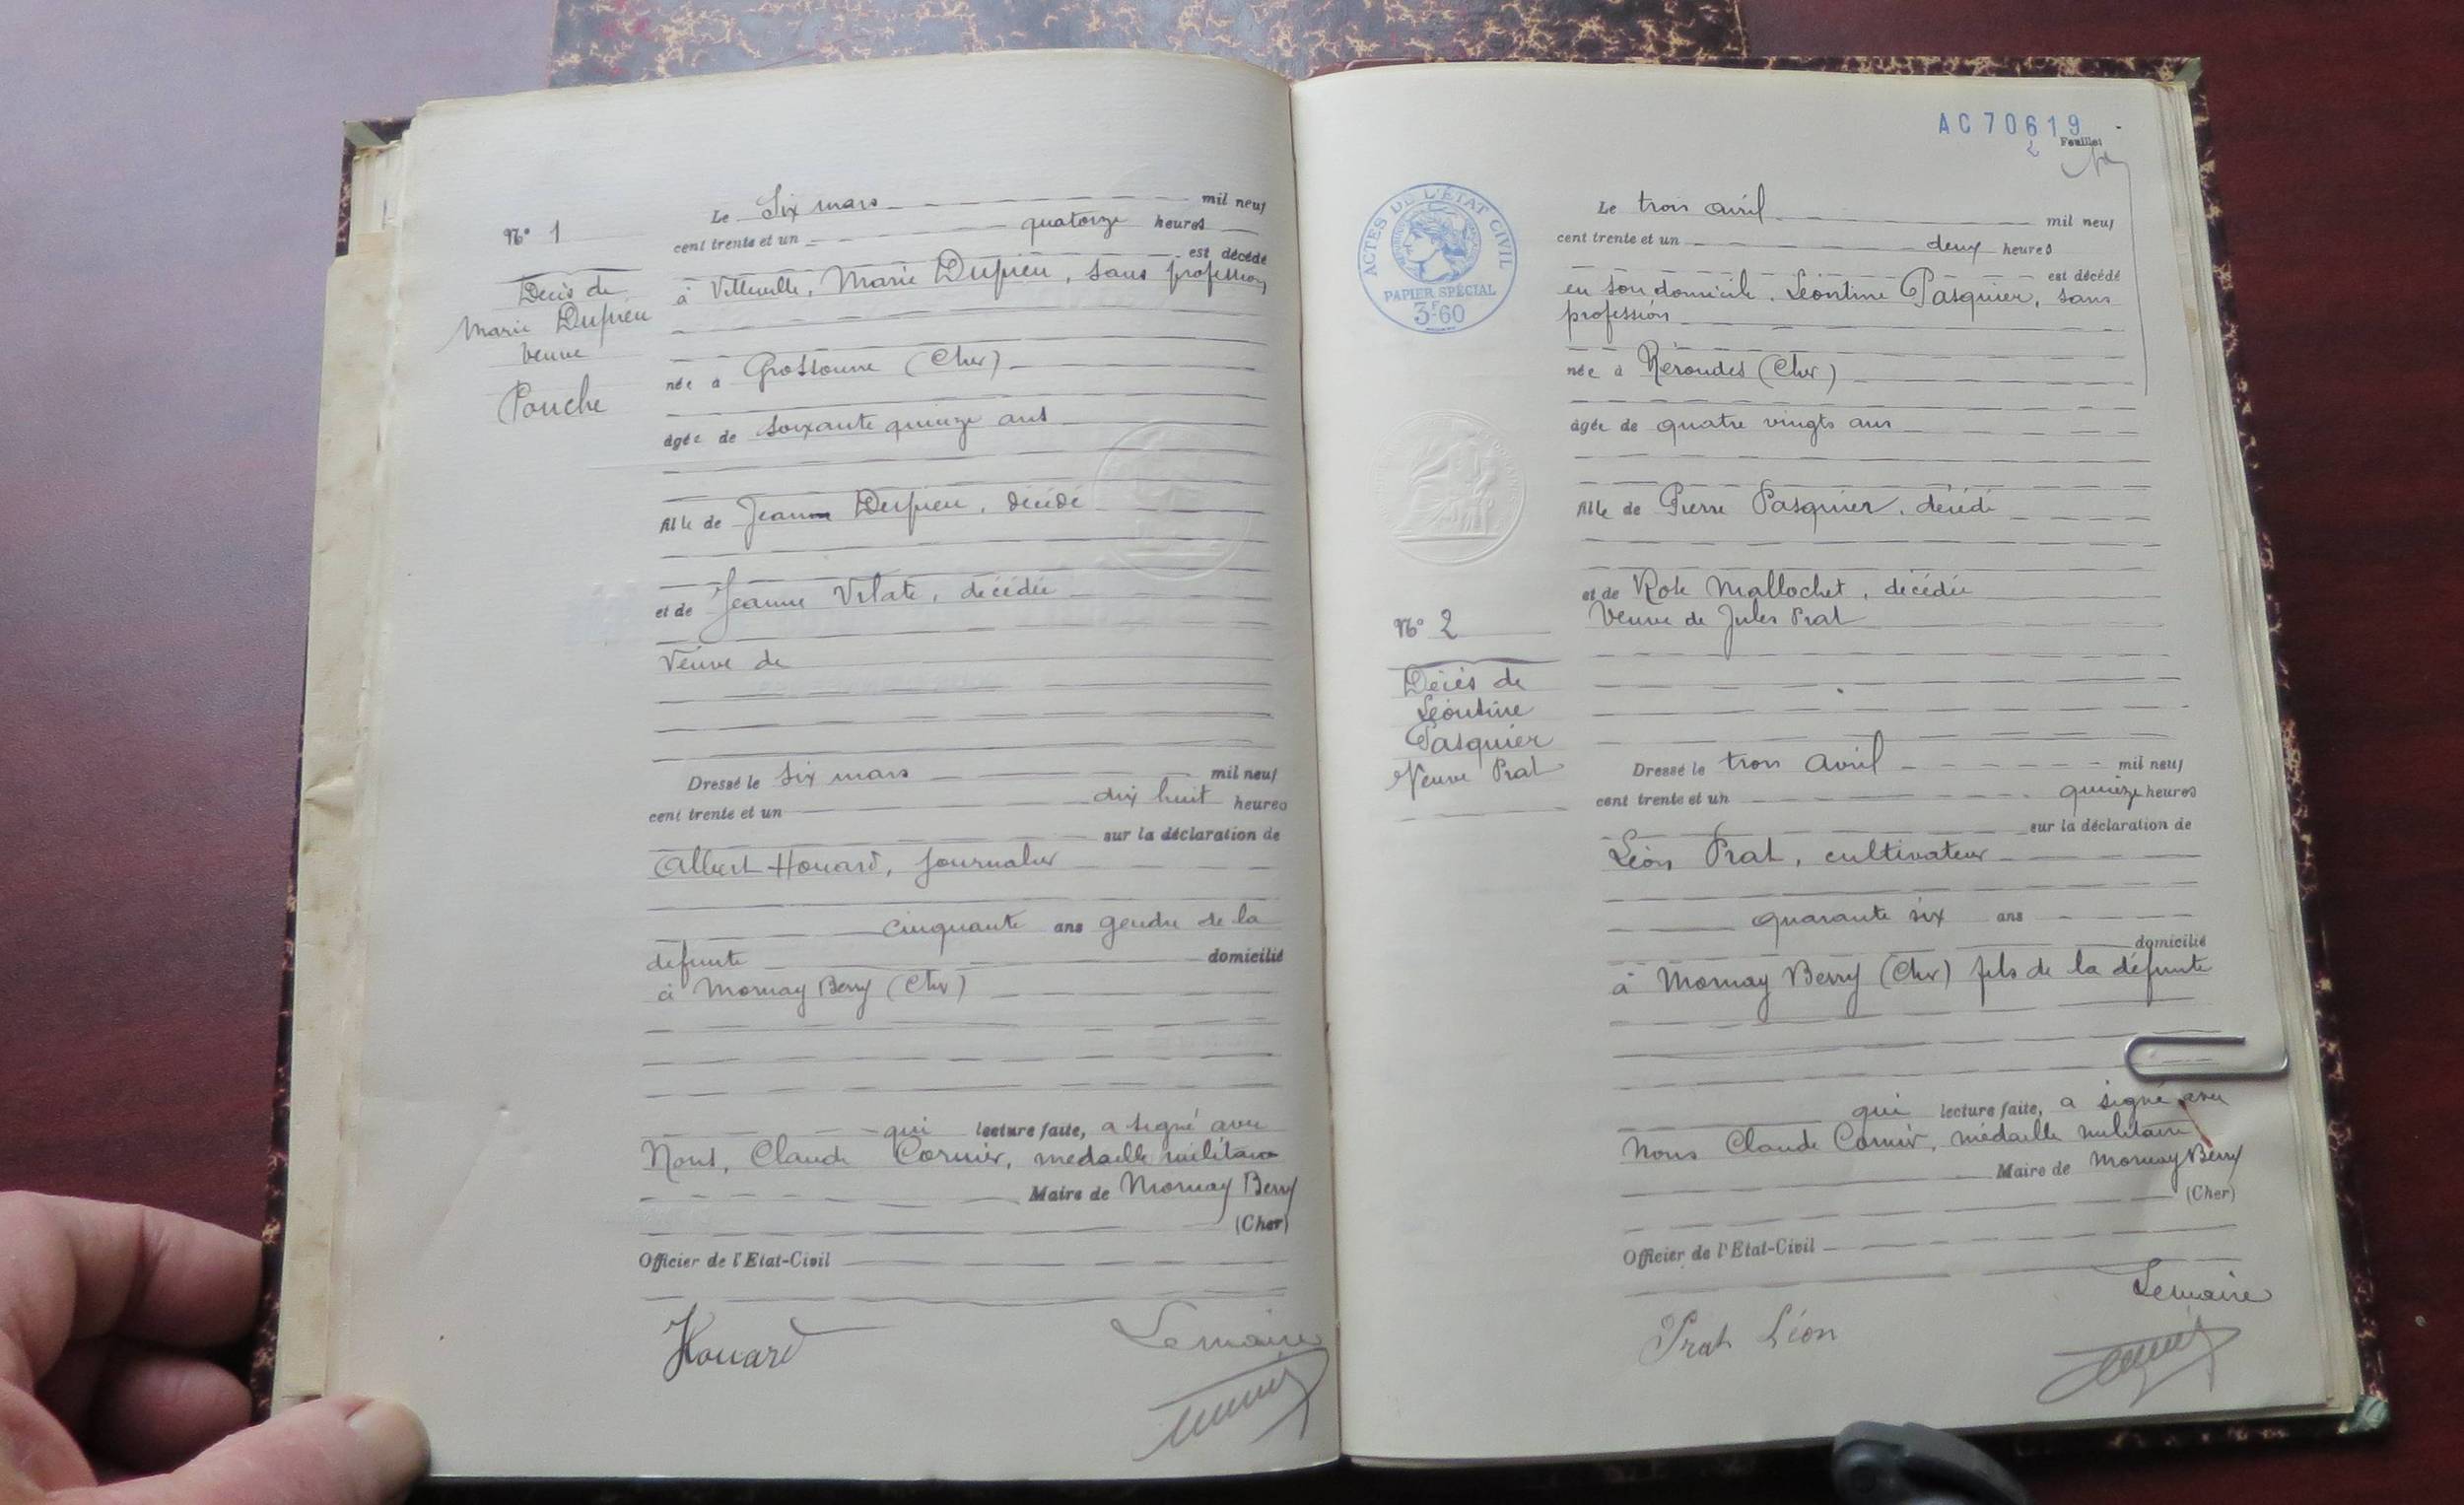 N° 1
Décès de
Marie Dupieu
Veuve
Pouche
Le Six mars mil neuf
cent trente et un quatorze heures
est décédé
à Marie Dupieu, sans profession
née à Grossouvre (Cher)
âgée de soixante quinze ans
fille de Dupieu, décédé
et de Jeanne décédée
Veuve de
Dressé le six mars mil neuf
cent trente et un dix huit heures
sur la déclaration de
Albert Houard, journalier
cinquante ans gendre de la
défunte domicilié
à Mornay Berry (Cher)
qui lecture faite, a signé avec
Nous, Claude Cornier, médaille militaire
Maire de Mornay Berry
(Cher)
Officier de l'Etat-Civil
Houard
Le maire
AC70619
2 Feuillet
ACTES DE L'ÉTAT CIVIL
PAPIER SPÉCIAL
3F60
N° 2
Décès de
Léontine
Pasquier
Veuve Prat
Le trois avril mil neuf
cent trente et un deux heures
est décédé
en son domicile, Léontine Pasquier, sans
profession
née à Nérondes (Cher)
âgée de quatre vingts ans
fille de Pierre Pasquier, décédé
et de Rose Mallochet, décédée
Veuve de Jules Prat
Dressé le trois avril mil neuf
cent trente et un quinze heures
sur la déclaration de
Léon Prat, cultivateur
quarante six ans
domicilié
à Mornay Berry (Cher) fils de la défunte
qui lecture faite, a signé avec
Nous Claude Cornier, médaille militaire
Maire de Mornay Berry
(Cher)
Officier de l'Etat-Civil
Le maire
Prat Léon